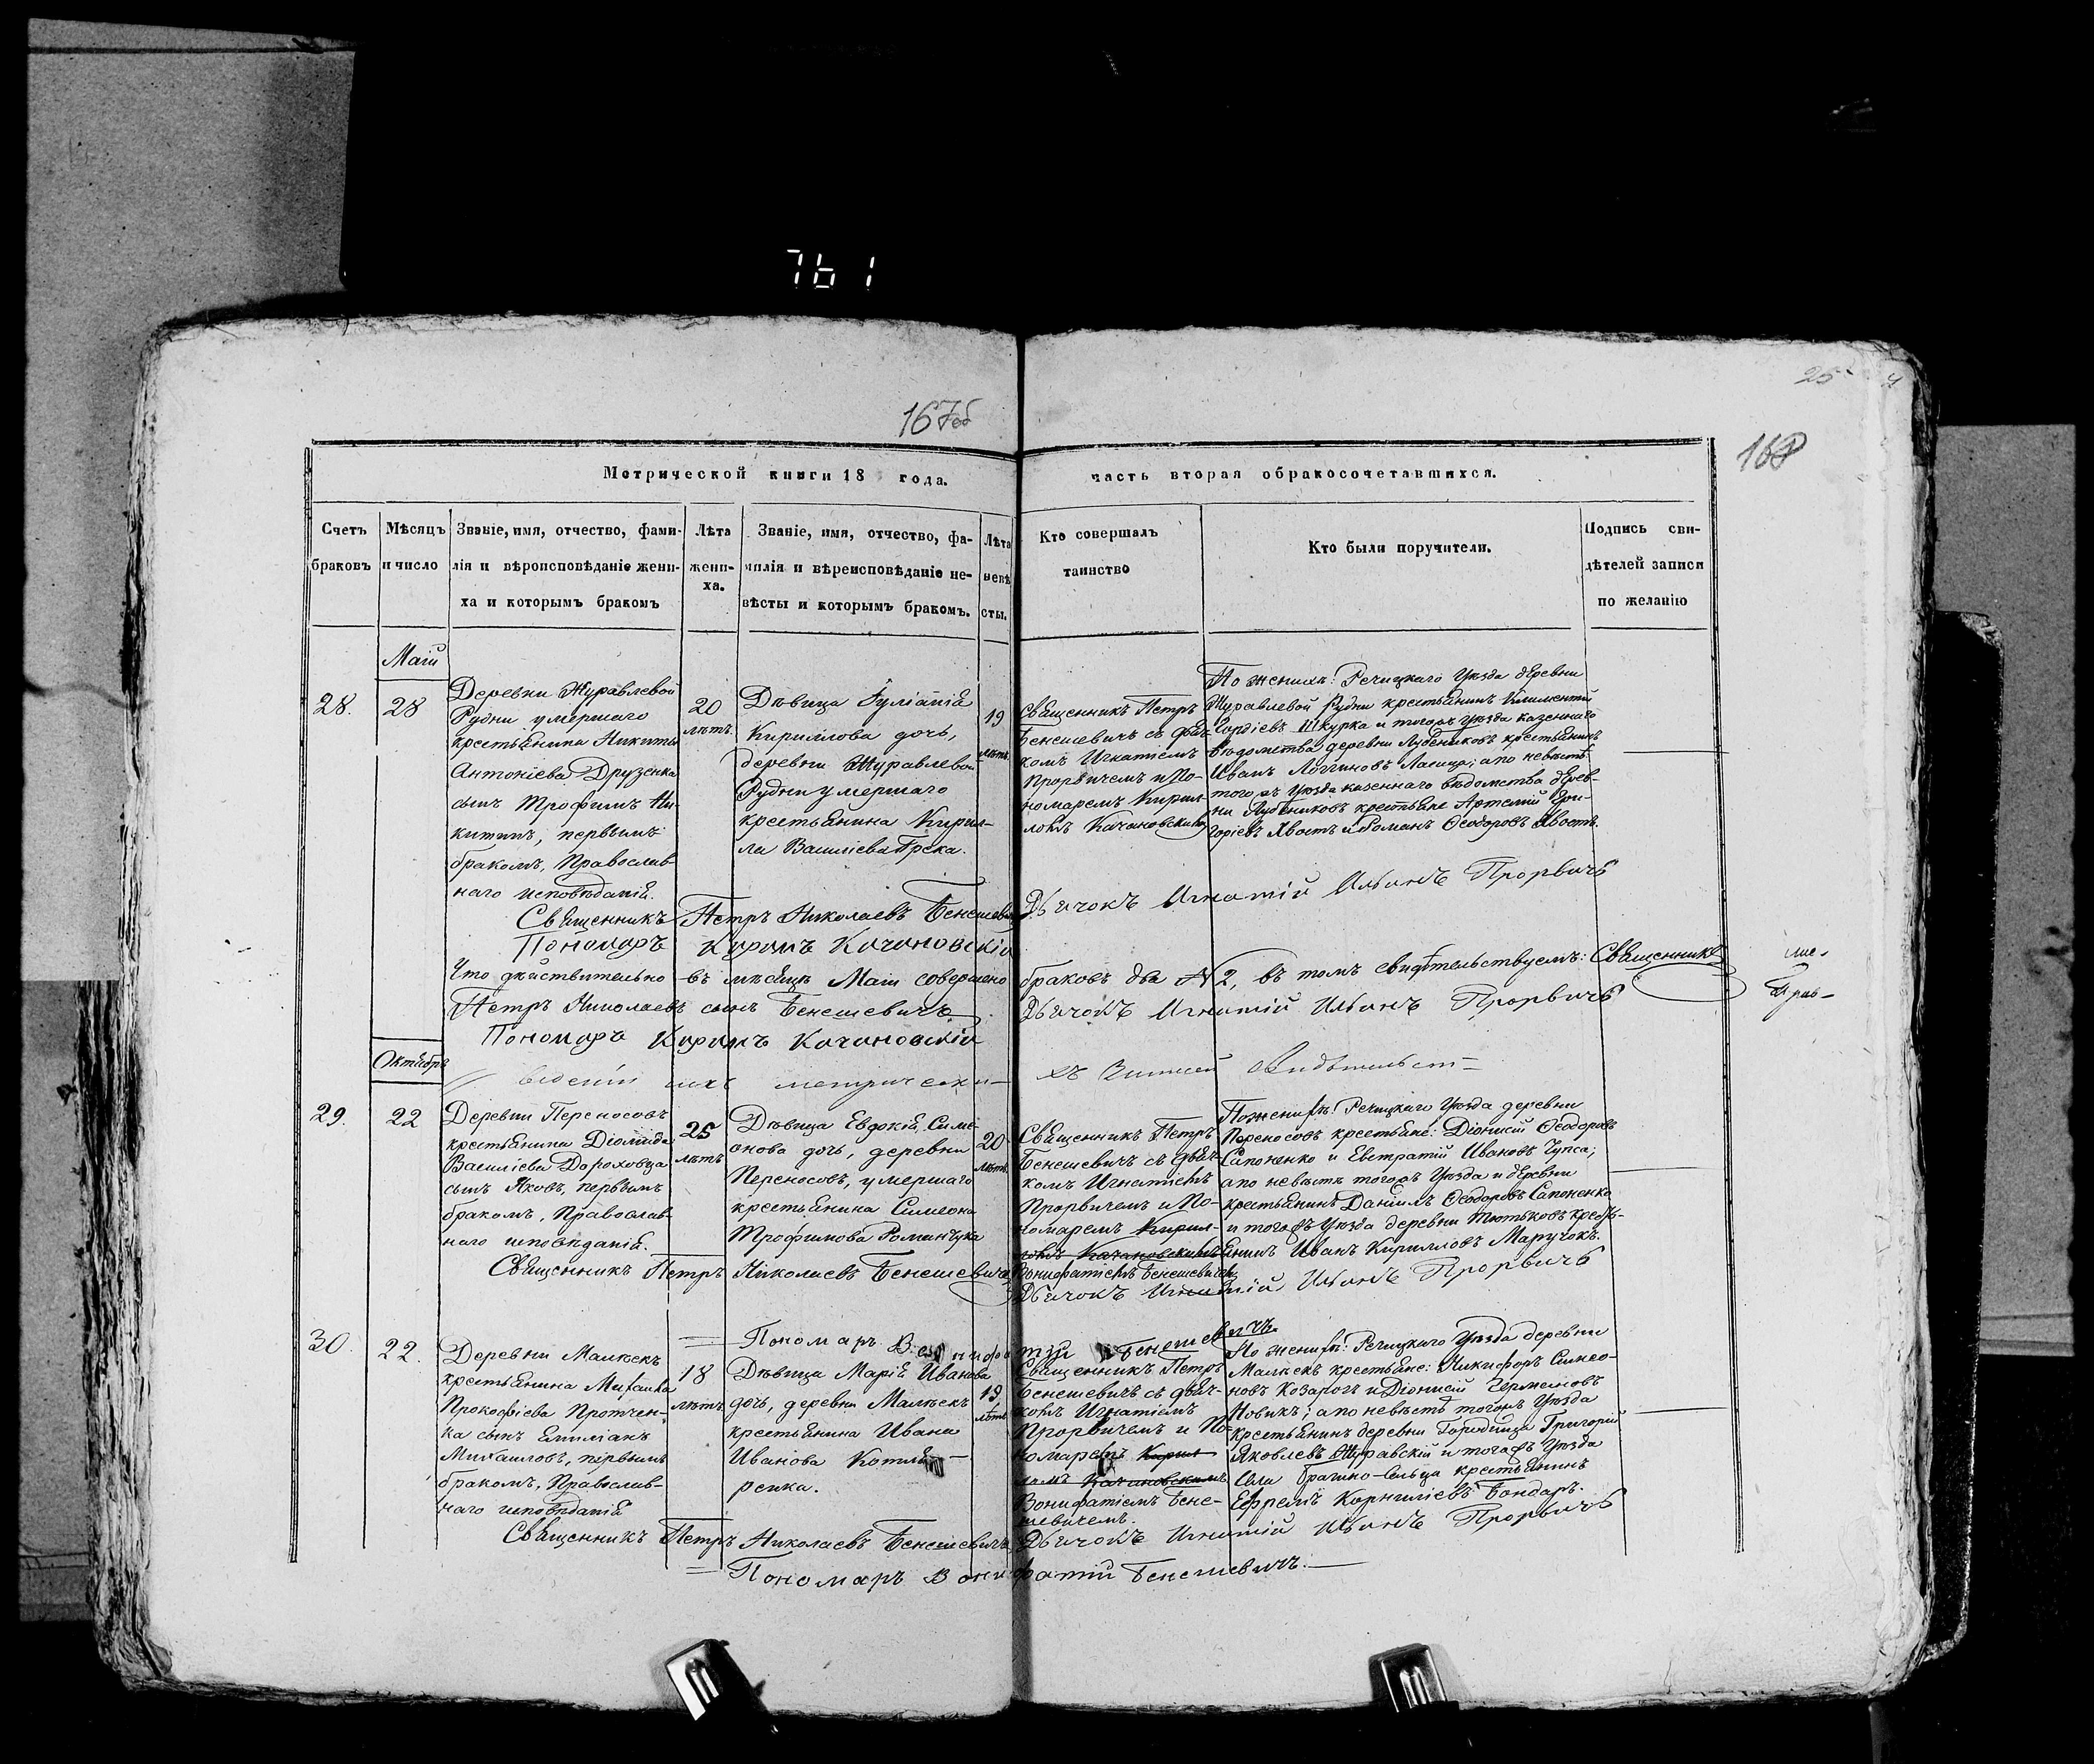 761
25
167об
168
Метрической книги 18 года.
часть вторая о бракосочетавшихся.
Счетъ браковъ
Мѣсяцъ и число
Званіе, имя, отчество, фами-
лія и вѣроисповѣданіе жени-
ха и которымъ бракомъ
Лѣта
жени-
ха.
Званіе, имя, отчество, фа-
милія и вѣроисповѣданіе не-
вѣсты и которымъ бракомъ.
Лѣта
невѣ
сты.
Кто совершалъ
таинство
Кто были поручители.
Подпись сви-
дѣтелей записи
по желанію
Маій
28.
28
Деревни Журавлевой
Рудни умершаго
крестьянина Никиты
Антоніева Друзенка
сынъ Трофимъ Ни-
китинъ, первымъ
бракомъ, Православ-
наго исповѣданія.
20
лѣтъ.
Дѣвица Іуліанія
Кириллова дочь,
деревни Журавлевой
Рудни умершаго
крестьянина Кирил-
ла Василіева Грека.
19
лѣтъ.
Священникъ Петръ
Бенешевичъ съ дьяч-
комъ Игнатіемъ
Прорвичемъ и По-
номаремъ Кирил-
ломъ Качановскимъ
По женихѣ: Речицкаго Уѣзда деревни
Журавлевой Рудни крестьянинъ Климентій
Гордіевъ Шкурка и тогожъ уѣзда казеннаго
вѣдомства деревни Лубениковъ крестьянинъ
Иванъ Логгиновъ Ласица; а по невѣстѣ
тогожъ Уѣзда казеннаго вѣдомства дерев-
ни Лубениковъ крестьяне Артемій Гри-
горіевъ Хвостъ и Романъ Ѳеодоровъ Хвостъ.
Священникъ Петръ Николаевъ Бенешевичъ
Дьячокъ Игнатій Ильинъ Прорвичъ
Пономаръ Кирилъ Качановскій
Что дѣйствительно въ мѣсяцѣ Маіи совершено браковъ два № 2, въ томъ свидѣтельствуемъ: Священникъ
Петръ Николаевъ сынъ Бенешевичъ.
Дьячокъ Игнатій Ильинъ Прорвичъ
Пономаръ Кирилъ Качановскій
Октябрь
метрически-
хъ свидѣтельст-
29.
22
Деревни Переносовъ
крестьянина Діомида
Василіева Дороховца
сынъ Яковъ, первымъ
бракомъ, Православ-
наго исповѣданія.
25
лѣтъ
Дѣвица Евдокія Симе-
онова дочь, деревни
Переносовъ, умершаго
крестьянина Симеона
Трофимова Романчука
20
лѣтъ.
Священникъ Петръ
Бенешевичъ съ дьяч-
комъ Игнатіемъ
Прорвичемъ и По-
номаремъ Кирил-
ломъ Качановскимъ
Вонифатіемъ Бенешевичемъ
По женихѣ: Речицкаго Уѣзда деревни
Переносовъ крестьяне: Діонисій Ѳеодоровъ
Сапоненко и Евстратій Ивановъ Чупса;
а по невѣстѣ тогожъ Уѣзда и деревни
крестьянинъ Даніилъ Ѳеодоровъ Сапоненко
и тогожъ Уѣзда деревни Тютьковъ кресть-
янинъ Иванъ Кирилловъ Маручокъ.
Священникъ Петръ Николаевъ Бенешевичъ
Дьячокъ Игнатій Ильинъ Прорвичъ
Пономаръ Вонифатій Бенешевичъ.
30.
22.
Деревни Малѣекъ
крестьянина Михаила
Прокофіева Протчен-
ка сынъ Емиліанъ
Михаиловъ, первымъ
бракомъ, Православ-
наго исповѣданія
18
лѣтъ
Дѣвица Марія Иванова
дочь, деревни Малѣекъ
крестьянина Ивана
Иванова Котля-
ренка.
19
лѣтъ
Священникъ Петръ
Бенешевичъ съ дьяч-
комъ Игнатіемъ
Прорвичемъ и По-
номаремъ Кирил-
ломъ Качановскимъ
Вонифатіемъ Бене-
шевичемъ.
По женихѣ: Речицкаго Уѣзда деревни
Малѣекъ крестьяне: Никифоръ Симео-
новъ Козарогъ и Діонисій
Новикъ; а по невѣстѣ тогожъ Уѣзда
крестьянинъ деревни Городища Григорій
Яковлевъ Журавскій и тогожъ Уѣзда
Села Брагино-Сельца крестьянинъ
Ефремъ Корниліевъ Бондаръ.
Священникъ Петръ Николаевъ Бенешевичъ
Дьячокъ Игнатій Ильинъ Прорвичъ
Пономаръ Вонифатій Бенешевичъ.